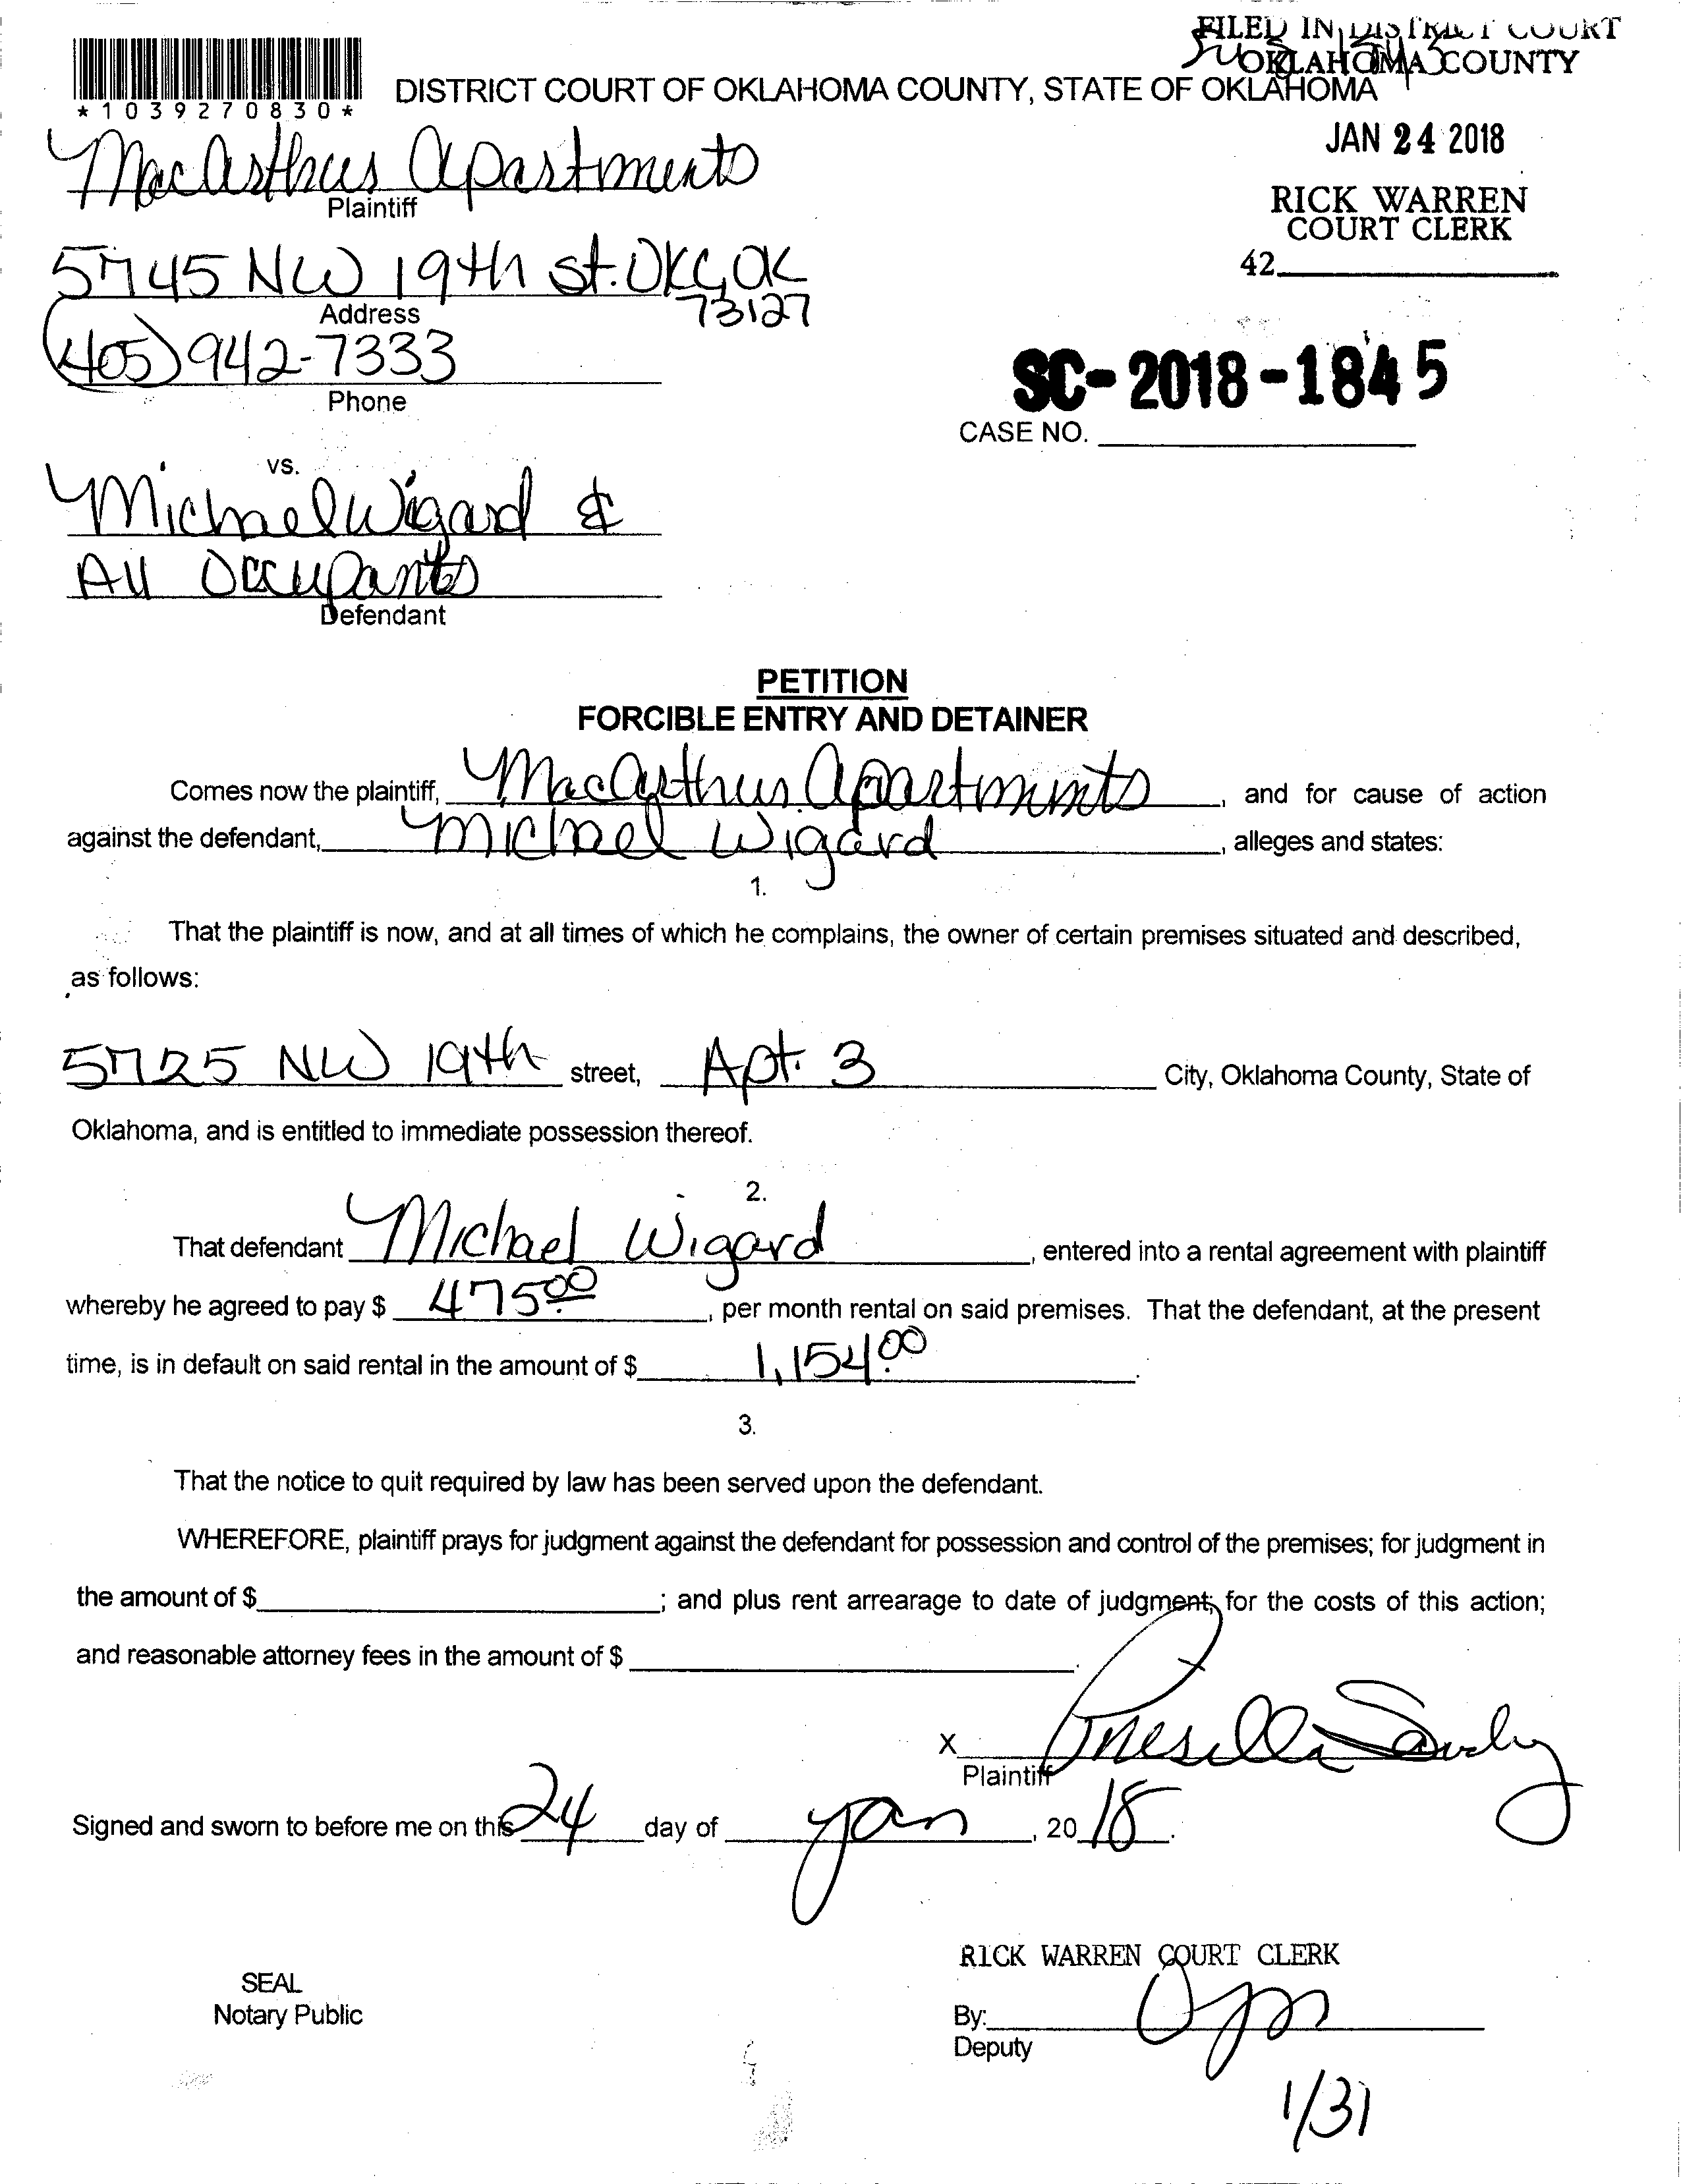 FILED IN DISTRICT COURT
OKLAHOMA COUNTY
*1039270830*
DISTRICT COURT OF OKLAHOMA COUNTY, STATE OF OKLAHOMA
JAN 24 2018
MacArthur Apartments
Plaintiff
RICK WARREN
COURT CLERK
5745 NW 19th St. OKC, OK
73127
42
Address
(405) 942-7333
Phone
SC-2018-1845
CASE NO.
vs.
Michael Wigard &
All Occupants
Defendant
PETITION
FORCIBLE ENTRY AND DETAINER
Comes now the plaintiff, MacArthur Apartments, and for cause of action
against the defendant, Michael Wigard, alleges and states:
1.
That the plaintiff is now, and at all times of which he complains, the owner of certain premises situated and described,
as follows:
5725 NW 19th street, Apt. 3 City, Oklahoma County, State of
Oklahoma, and is entitled to immediate possession thereof.
2.
That defendant Michael Wigard, entered into a rental agreement with plaintiff
whereby he agreed to pay $ 475.00, per month rental on said premises. That the defendant, at the present
time, is in default on said rental in the amount of $ 1,154.00.
3.
That the notice to quit required by law has been served upon the defendant.
WHEREFORE, plaintiff prays for judgment against the defendant for possession and control of the premises; for judgment in
the amount of $ ; and plus rent arrearage to date of judgment; for the costs of this action;
and reasonable attorney fees in the amount of $ .
X
Plaintiff
Signed and sworn to before me on this 24 day of Jan, 20 18.
RICK WARREN COURT CLERK
SEAL
Notary Public
By:
Deputy
1/31